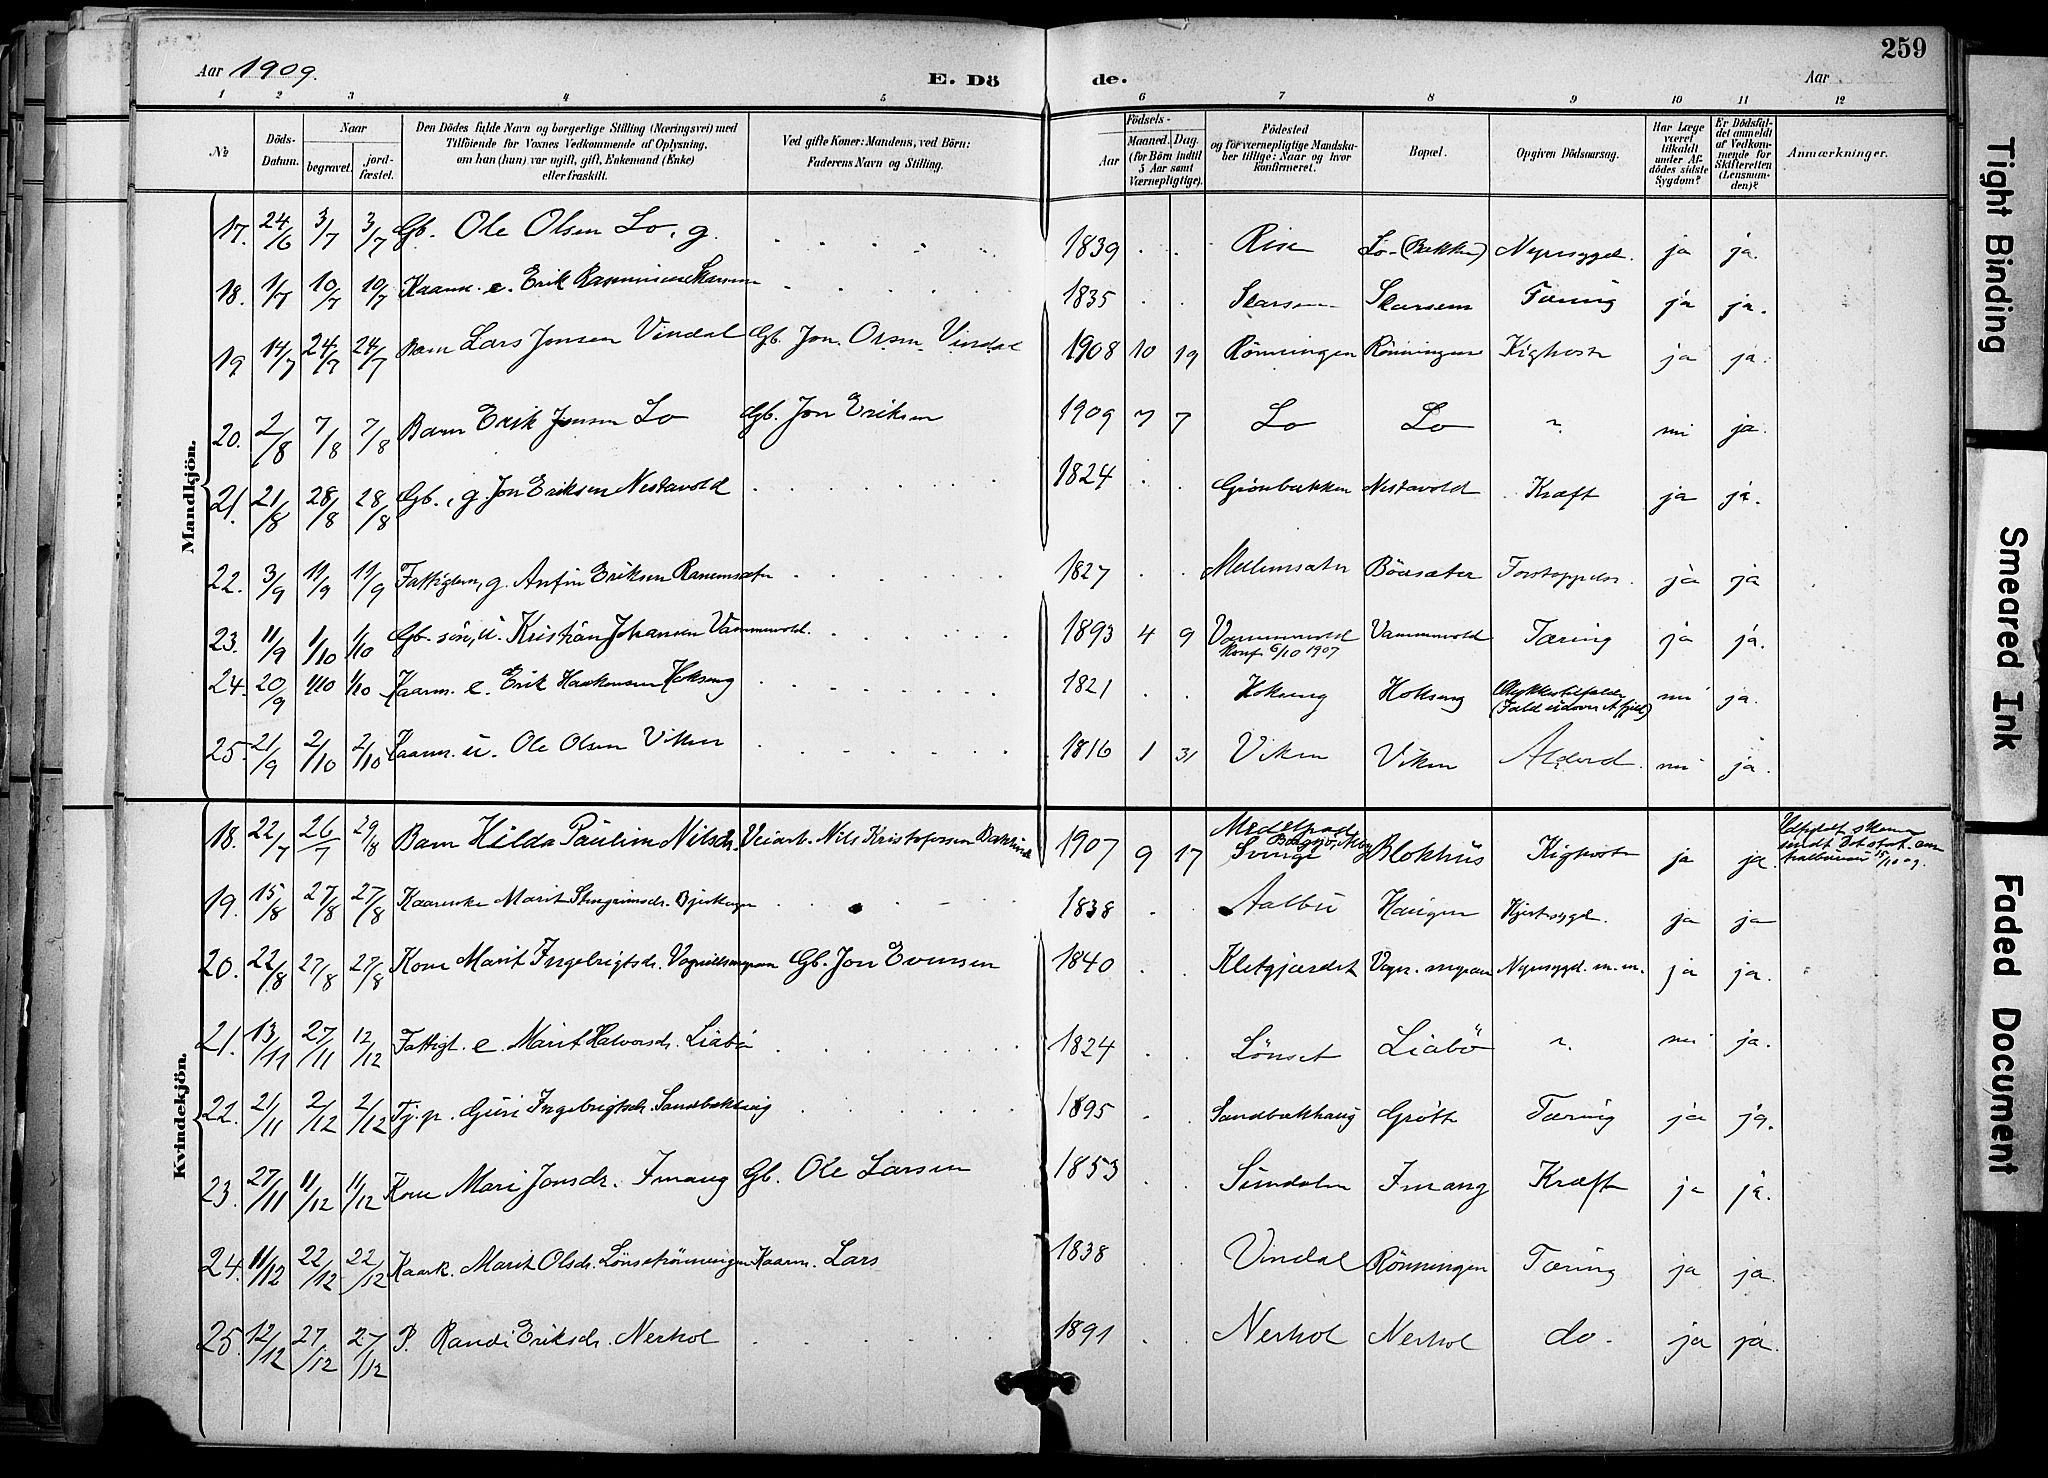 Aar 1909.
E. Dö de.
Aar
259
1 2 3 4 5 6 7 8 9 10 11 12
№
Döds-Datum.
Naar
begravet.
jord-fæstet.
Den Dödes fulde Navn og borgerlige Stilling (Næringsvei) med
Tilföiende for Voxnes Vedkommende af Oplysning,
om han (hun) var ugift, gift, Enkemand (Enke)
eller fraskilt.
Ved gifte Koner: Mandens, ved Börn:
Faderens Navn og Stilling.
Födsels-
Aar
Maaned. Dag.
(for Börn indtil
5 Aar samt
Værnepligtige).
Födested
og for værnepligtige Mandska-
ber tillige: Naar og hvor
konfirmeret.
Bopæl.
Opgiven Dödsaarsag.
Har Læge
været
tilkaldt
under Af-
dödes sidste
Sygdom?
Er Dödsfal-
det anmeldt
af Vedkom-
mende for
Skifteretten
(Lensmam-
den)?
Anmærkninger.
Mandkjön.
17. 24/6 3/7 3/7 Gb. Ole Olsen Lo, g. 1839 Rise Lo (Bakken) Nyresygd. ja ja.
18. 1/7 10/7 10/7 Kaarm. e. Erik Rasmussen Skarsem 1835 Skarsem Skarsem Tæring ja ja.
19 14/7 24/7 24/7 Barn Lars Jonsen Vindal Gb. Jon Olsen Vindal 1908 10 19 Rönningen Rönningen Kighoste ja ja.
20. 2/8 7/8 7/8 Barn Erik Jonsen Lo Gb. Jon Eriksen 1909 7 7 Lo Lo ? nei ja.
21. 21/8 28/8 28/8 Gb., g. Jon Eriksen Nestavold 1824 Grönbakken Nestavold Kræft ja ja.
22. 3/9 11/9 11/9 Fattiglem, g. Anfin Eriksen Ranemsæter 1827 Mellemsæter Böasæter Forstoppelse. ja ja
23. 11/9 1/10 1/10 Gb. sön, u. Kristian Johansen Vammervold. 1893 4 9 Vammervold Vammervold Tæring ja ja.
Konf 6/10 1907
24. 20/9 1/10 1/10 Kaarm. e. Erik Haakensen Hokseng 1821 Hokseng Hokseng Ulykkestilfælde nei ja.
(Fald udover et fjeld)
25. 21/9 2/10 2/10 Kaarm. u. Ole Olsen Viken 1816 1 31 Viken Viken Alderd. nei ja.
Kvindekjön.
18. 22/7 26/7 29/8 Barn Hilda Pauline Nilsdr. Veiarb. Nils Kristofersen 1907 9 17 Medelpad Borgsjö, Alby Sverige Blokhus Kighoste ja ja 15/10 09.
19. 15/8 27/8 27/8 Kaarenke Marit Stengrimsdr. 1838 Aalbu Haugen Hjertesygd. ja ja
20. 22/8 27/8 27/8 Kone Marit Ingebrigtsdr. Vognildsmyran Gb. Jon Evensen 1840 Kletgjærdet Vogn. myran Nyresygd. m. m. ja ja.
21. 13/11 27/11 12/12 Fattigl. e. Marit Halvorsdr. Liabö 1824 Lönset Liabö ? nei ja.
22. 21/11 2/12 2/12 Tj. p. Guri Ingebrigtsdr. Sandbækhaug 1895 Sandbækhaug Gröte Tæring ja ja.
23. 27/11 11/12 11/12 Kone Mari Jonsdr. Imang Gb. Ole Larsen 1853 Sundalen Imang Kræft ja ja.
24. 11/12 22/12 22/12 Kaark. Marit Olsdr. Lönsetrönningen Kaarm. Lars 1838 Vindal Rönningen Tæring ja ja.
25. 12/12 27/12 27/12 P. Randi Eriksdr. Nerhol 1891 Nerhol Nerhol do. ja ja.
Tight Binding
Smeared Ink
Faded Document